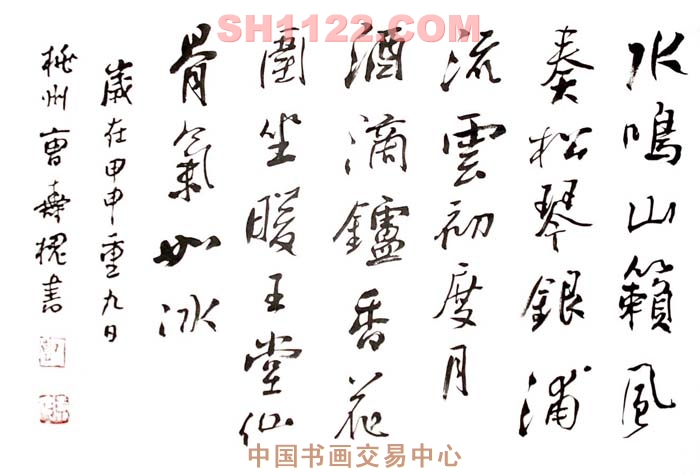 SH1122.COM
水鳴山籟風
奏松琴銀浦
流雲初度月
酒滴鑪香花
圍坐暖玉堂仙
骨氣如冰
歲在甲申重九日
曹壽槐書
中国书画交易中心